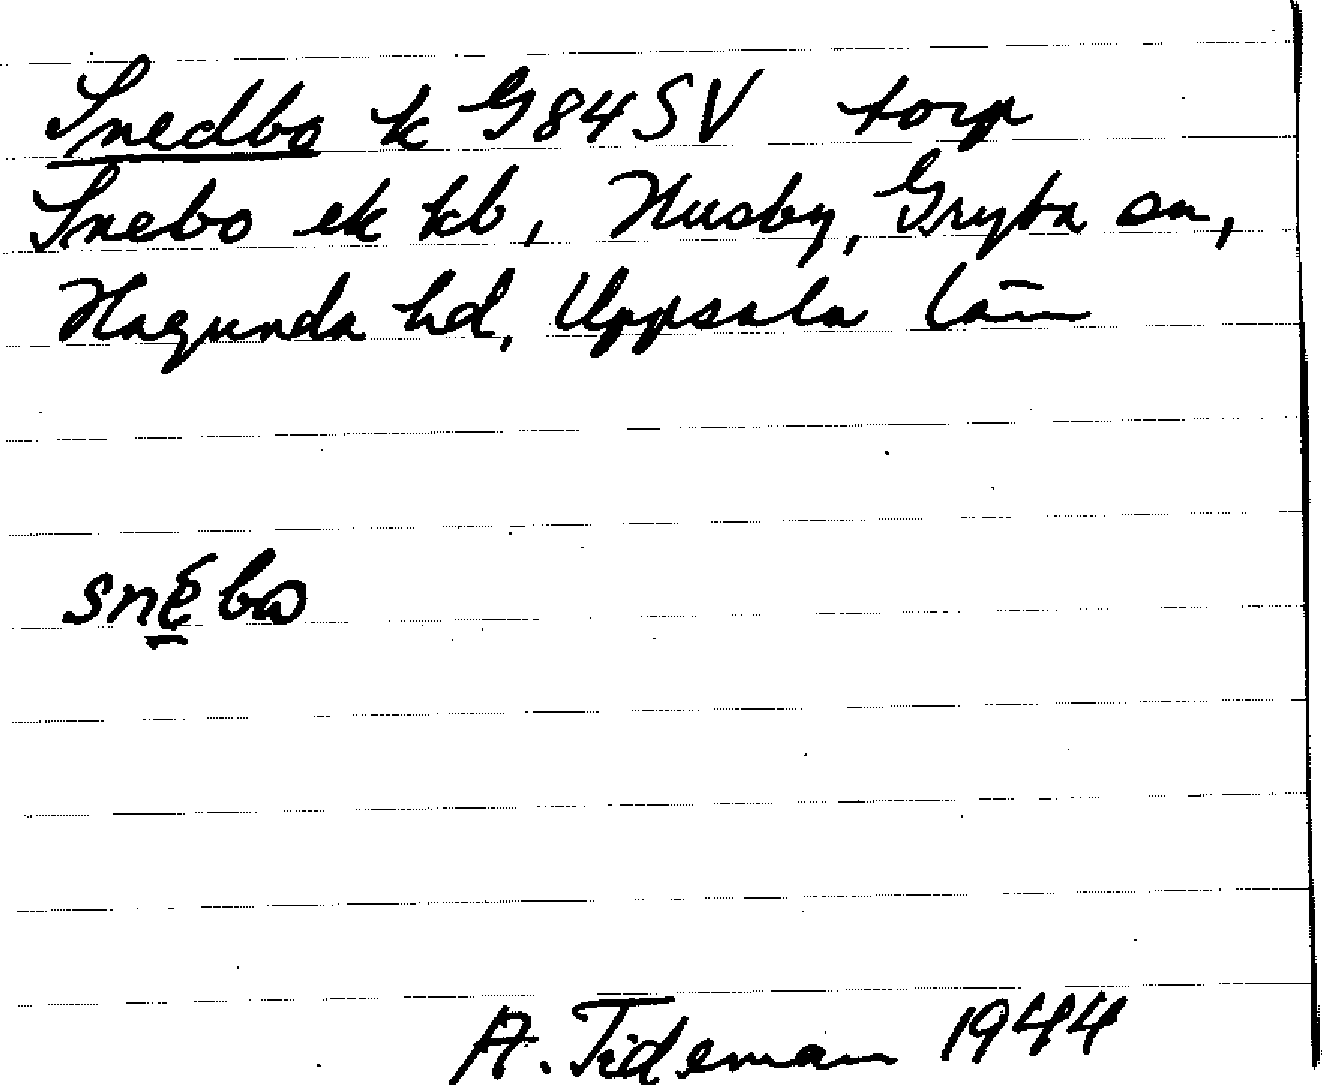 Snedbo k G84SV torp
Snebo ek kb, Husby, Gryta sn,
Hagunda hd, Uppsala län
snebo
A. Tideman 1944